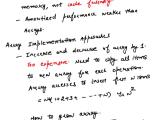 memory, not cache friendly
- Amortized performance weaker than
Arrays.
Array Implementation Approaches
- Increase and decrease of array by 1.
Too expensive need to copy all items
to new array for each operation
Array accesses to insert first N items
= N + (2+4+ ... ) ~ N²
How to grow array.